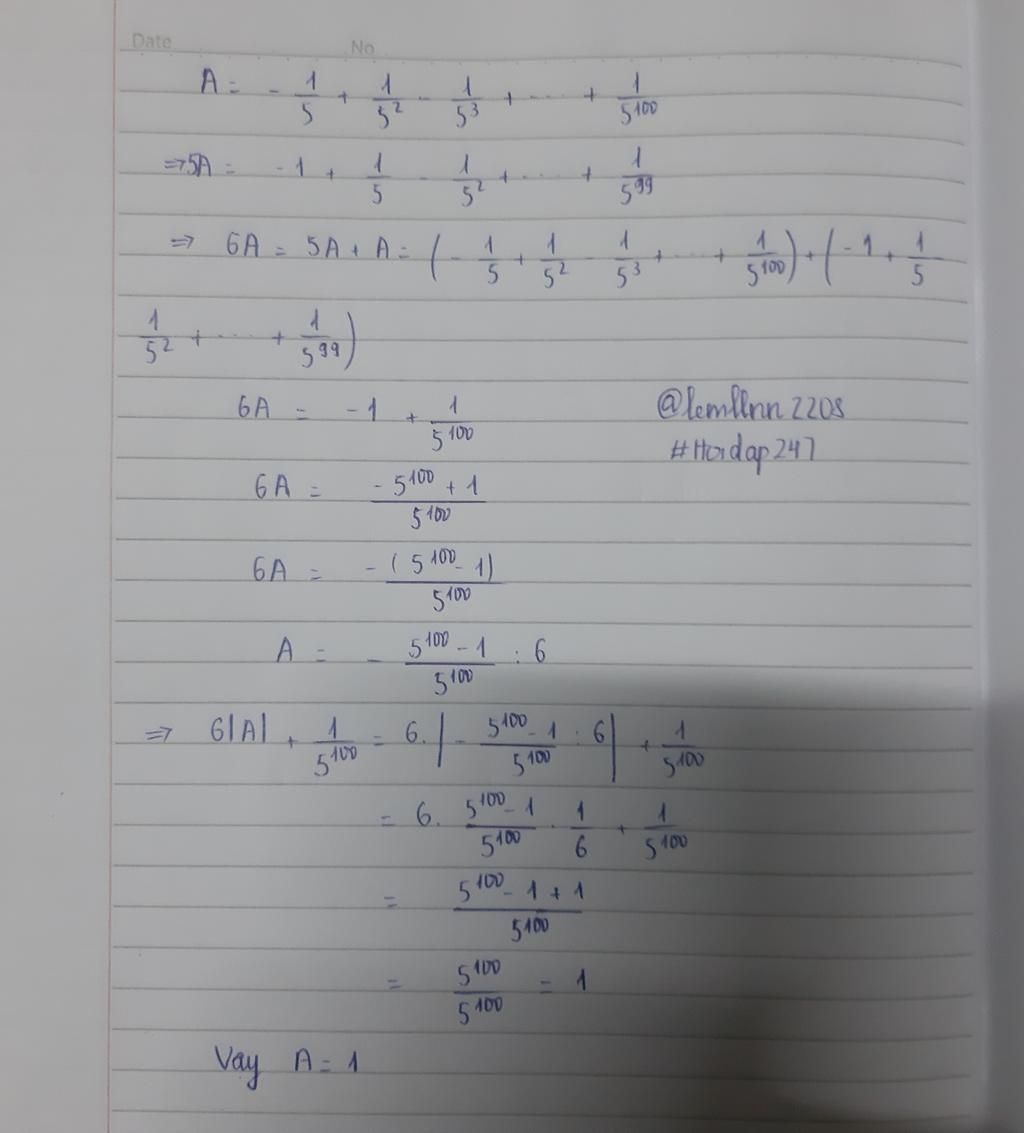 Date No
A = - 1/5 + 1/5² - 1/5³ + ..... + 1/5¹⁰⁰
=> 5A = -1 + 1/5 - 1/5² + ..... + 1/5⁹⁹
=> 6A = 5A + A = (- 1/5 + 1/5² - 1/5³ + ..... + 1/5¹⁰⁰) + (-1 + 1/5
1/5² + ..... + 1/5⁹⁹)
6A = -1 + 1/5¹⁰⁰
@lemllnn2208
#Hoidap247
6A = (-5¹⁰⁰ + 1)/5¹⁰⁰
6A = -(5¹⁰⁰ - 1)/5¹⁰⁰
A = - (5¹⁰⁰ - 1)/5¹⁰⁰ : 6
=> 6|A| + 1/5¹⁰⁰ = 6. |- (5¹⁰⁰ - 1)/5¹⁰⁰ : 6| + 1/5¹⁰⁰
= 6. (5¹⁰⁰ - 1)/5¹⁰⁰ . 1/6 + 1/5¹⁰⁰
= (5¹⁰⁰ - 1 + 1)/5¹⁰⁰
= 5¹⁰⁰/5¹⁰⁰ = 1
Vay A = 1